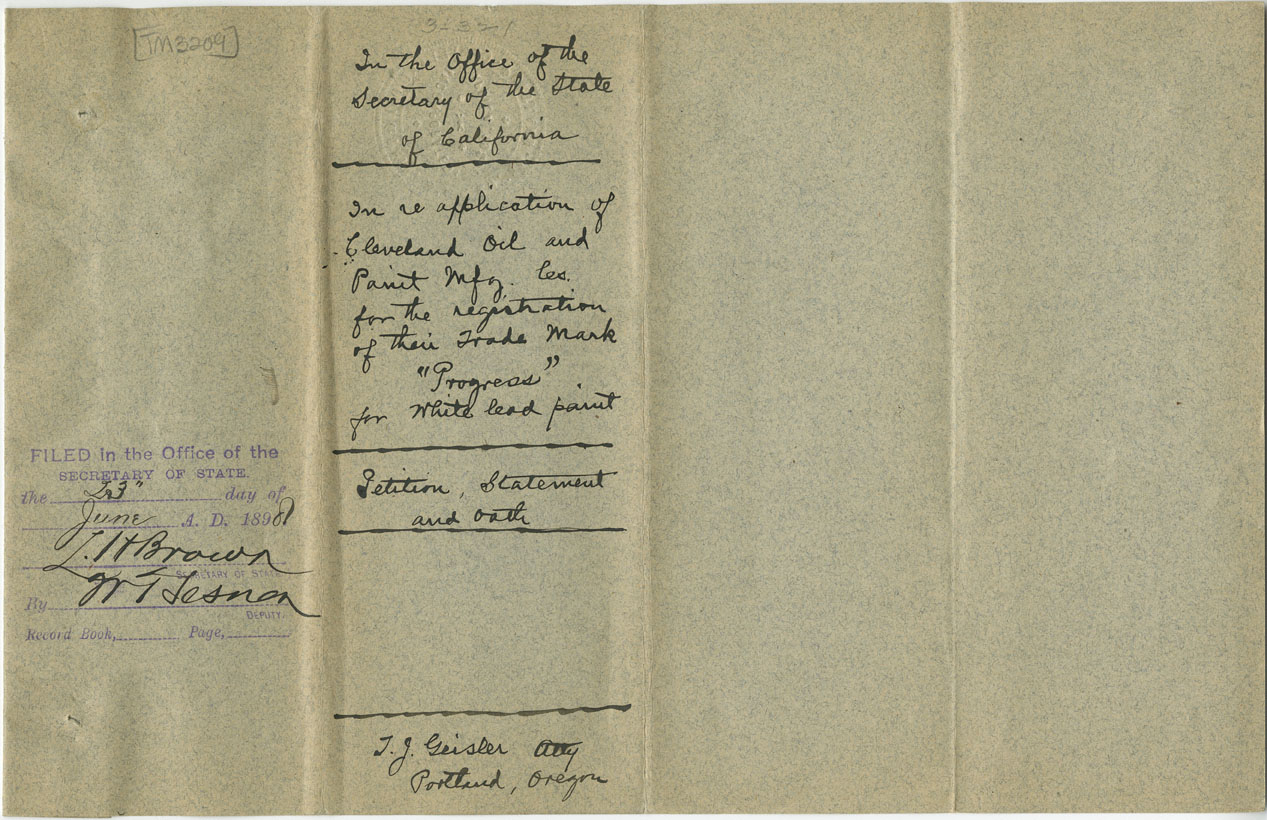 TM3209
FILED in the Office of the
SECRETARY OF STATE
the 23" day of
June A. D. 1898
L. H Brown
SECRETARY OF STATE
By W T Sesnon
DEPUTY.
Record Book, Page,
3-321
In the Office of the
Secretary of the State
of California
In re application of
Cleveland Oil and
Paint Mfg. Co.
for the registration
of their Trade Mark
"Progress"
for White lead paint
Petition, Statement
and Oath
T. J. Geisler Atty
Portland, Oregon